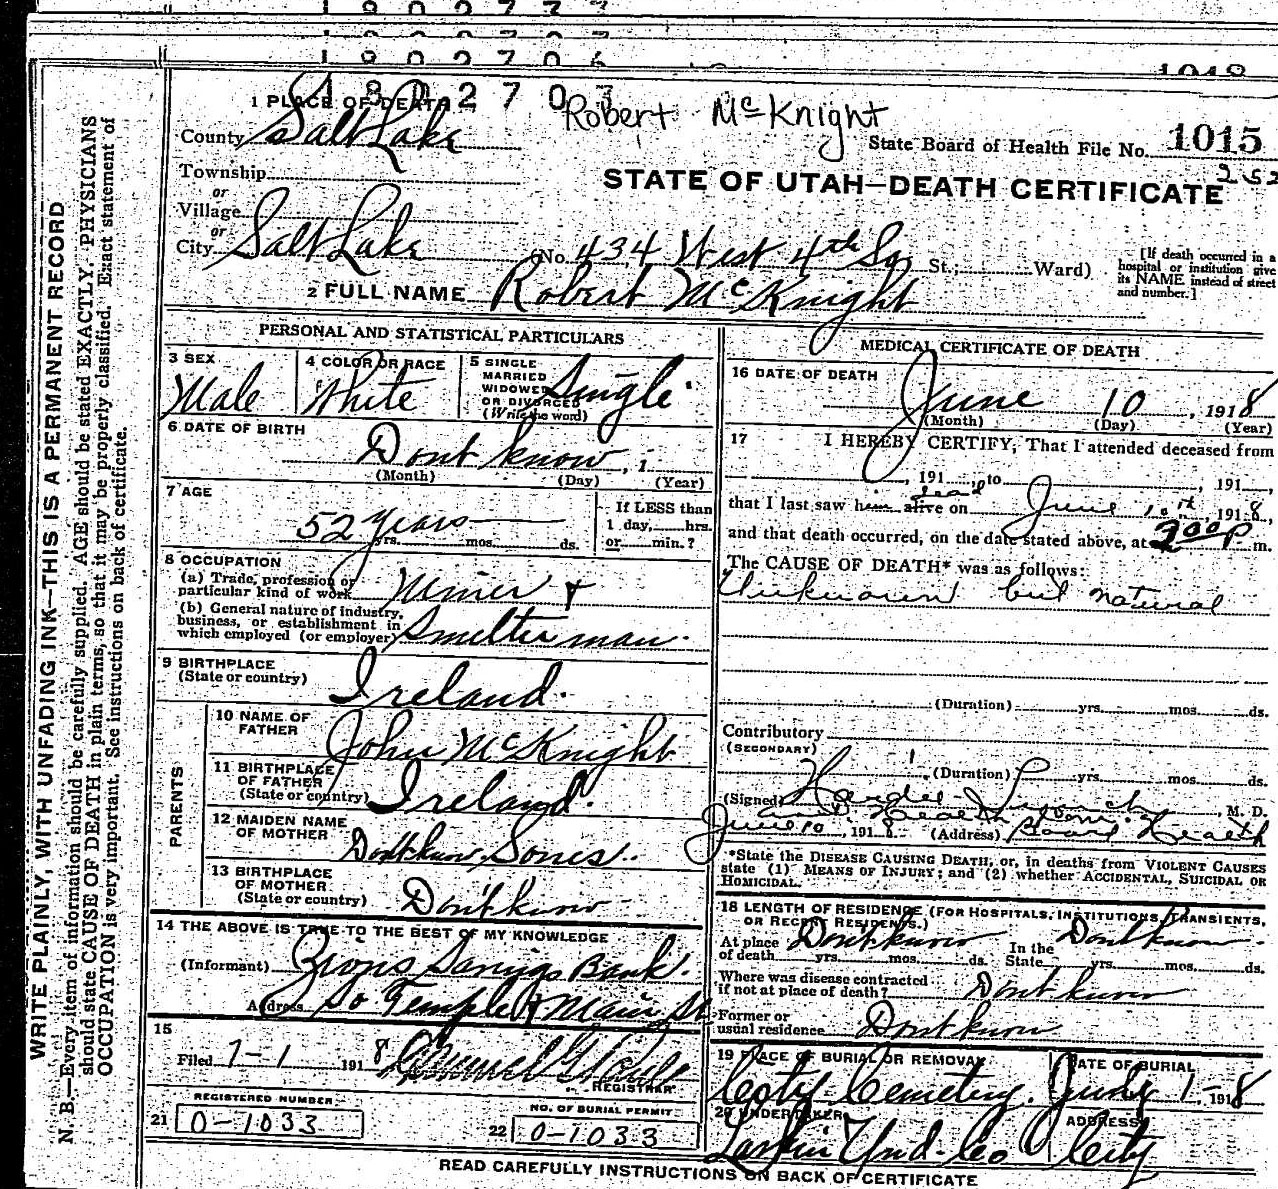 1 8 0 2 7 0 6
1 8 0 2 7 0 7
Robert McKnight
1 PLACE OF DEATH
County Salt Lake
State Board of Health File No. 1015
252
Township
or
Village
or
City Salt Lake
STATE OF UTAH—DEATH CERTIFICATE
(No. 434 West 4th So St.; Ward)
[If death occurred in a
hospital or institution give
its NAME instead of street
and number.]
2 FULL NAME Robert McKnight
PERSONAL AND STATISTICAL PARTICULARS
3 SEX
Male
4 COLOR OR RACE
White
5 SINGLE
MARRIED
WIDOWED
OR DIVORCED
(Write the word)
Single
6 DATE OF BIRTH
Dont know, 1
(Month) (Day) (Year)
7 AGE
52 years
yrs. mos. ds.
If LESS than
1 day, hrs.
or min.?
8 OCCUPATION
(a) Trade, profession or
particular kind of work Miner &
(b) General nature of industry,
business, or establishment in
which employed (or employer) Smelter man
9 BIRTHPLACE
(State or country) Ireland.
PARENTS
10 NAME OF
FATHER John McKnight
11 BIRTHPLACE
OF FATHER
(State or country) Ireland.
12 MAIDEN NAME
OF MOTHER Dont know
13 BIRTHPLACE
OF MOTHER
(State or country) Don't know
14 THE ABOVE IS TRUE TO THE BEST OF MY KNOWLEDGE
(Informant) Zions Savings Bank.
Address So Temple & Main St
15
Filed 7-1 1918
REGISTRAR
REGISTERED NUMBER
21 0-1033
NO. OF BURIAL PERMIT
22 0-1033
MEDICAL CERTIFICATE OF DEATH
16 DATE OF DEATH
June 10, 1918
(Month) (Day) (Year)
17 I HEREBY CERTIFY, That I attended deceased from
, 191 , to , 191 ,
dead
that I last saw him alive on June 10th, 1918,
and that death occurred, on the date stated above, at 200 P m.
The CAUSE OF DEATH* was as follows:
Unknown but natural
(Duration) yrs. mos. ds.
Contributory
(SECONDARY)
(Duration) yrs. mos. ds.
(Signed) M. D.
Health Com.
June 10, 1918 (Address) Board Health
*State the DISEASE CAUSING DEATH, or, in deaths from VIOLENT CAUSES
state (1) MEANS OF INJURY; and (2) whether ACCIDENTAL, SUICIDAL OR
HOMICIDAL.
18 LENGTH OF RESIDENCE (FOR HOSPITALS, INSTITUTIONS, TRANSIENTS,
OR RECENT RESIDENTS.)
At place
of death Dont know yrs. mos. ds.
In the
State Dont know yrs. mos. ds.
Where was disease contracted
if not at place of death? Dont know
Former or
usual residence Dont know
19 PLACE OF BURIAL OR REMOVAL
City Cemetery.
DATE OF BURIAL
July 1- 1918
20 UNDERTAKER
Larkin Und. Co
ADDRESS
City
READ CAREFULLY INSTRUCTIONS ON BACK OF CERTIFICATE
WRITE PLAINLY, WITH UNFADING INK—THIS IS A PERMANENT RECORD
N. B.—Every item of information should be carefully supplied. AGE should be stated EXACTLY. PHYSICIANS
should state CAUSE OF DEATH in plain terms, so that it may be properly classified. Exact statement of
OCCUPATION is very important. See instructions on back of certificate.